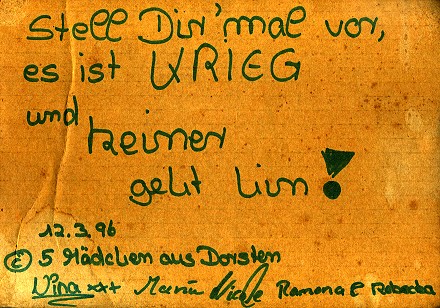 Stell Dir 'mal vor,
es ist KRIEG
und
keiner
geht hin!
12.3.96
© 5 Mädchen aus Dorsten
Nina xxx Nicole Ramona & Rebecka